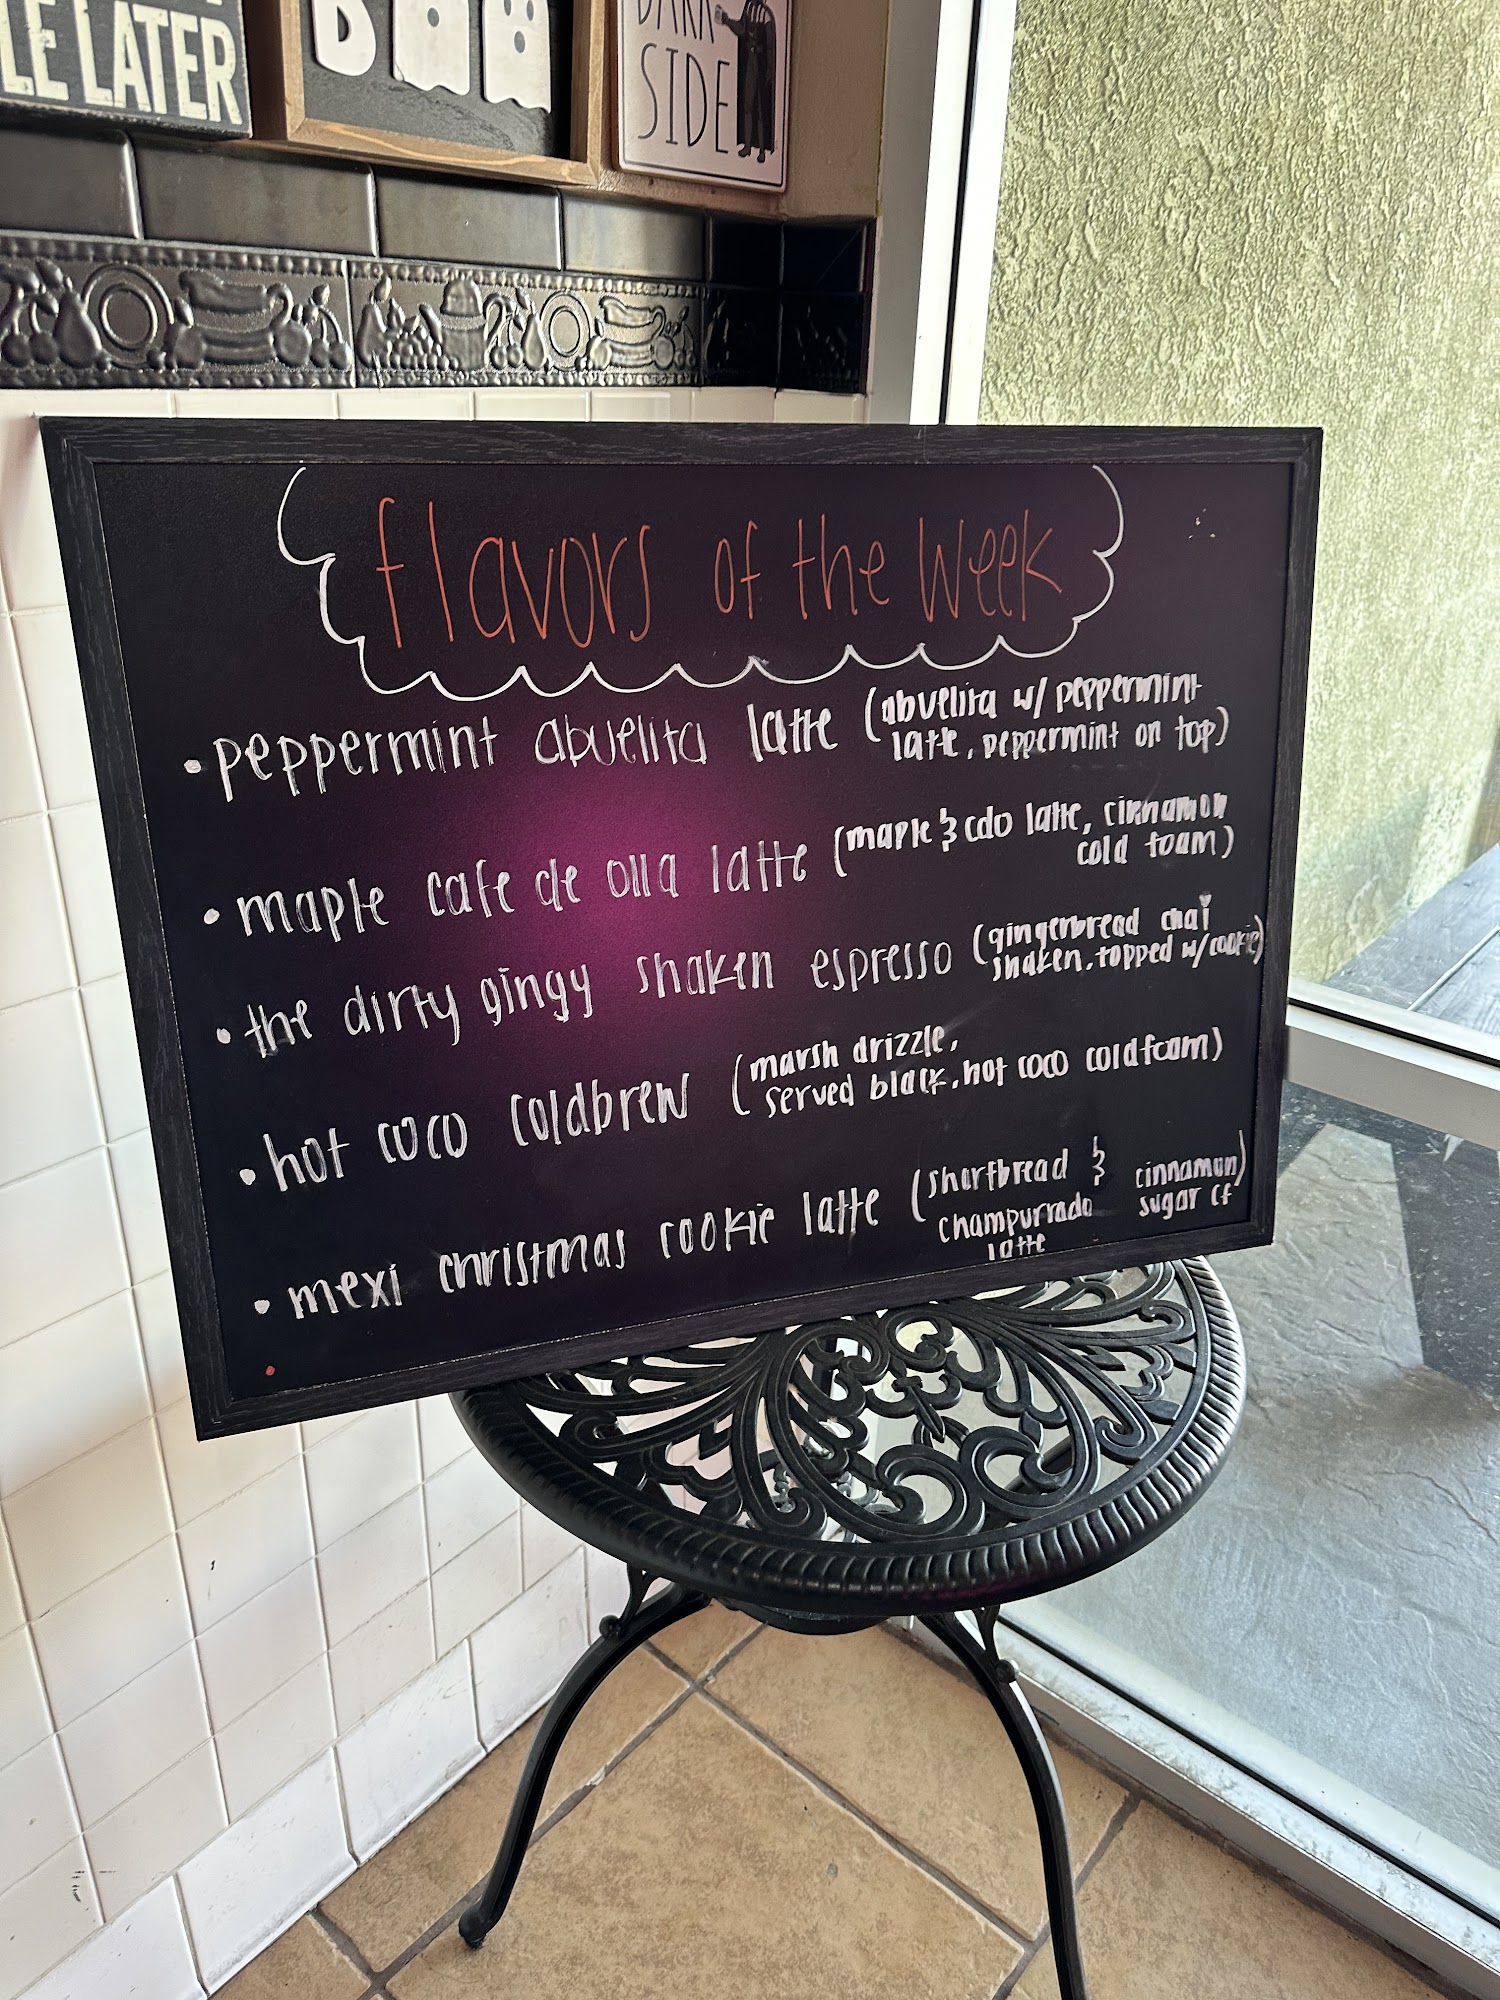 LE LATER
B
DARK
SIDE
flavors of the week
• peppermint abuelita latte (abuelita w/ peppermint
latte, peppermint on top)
• maple cafe de olla latte (maple & cdo latte, cinnamon
cold foam)
• the dirty gingy shaken espresso (gingerbread chai
shaken, topped w/cookie)
• hot coco coldbrew (marsh drizzle,
served black, hot coco coldfoam)
• mexi christmas cookie latte (shortbread & cinnamon)
champurrado sugar cf
latte